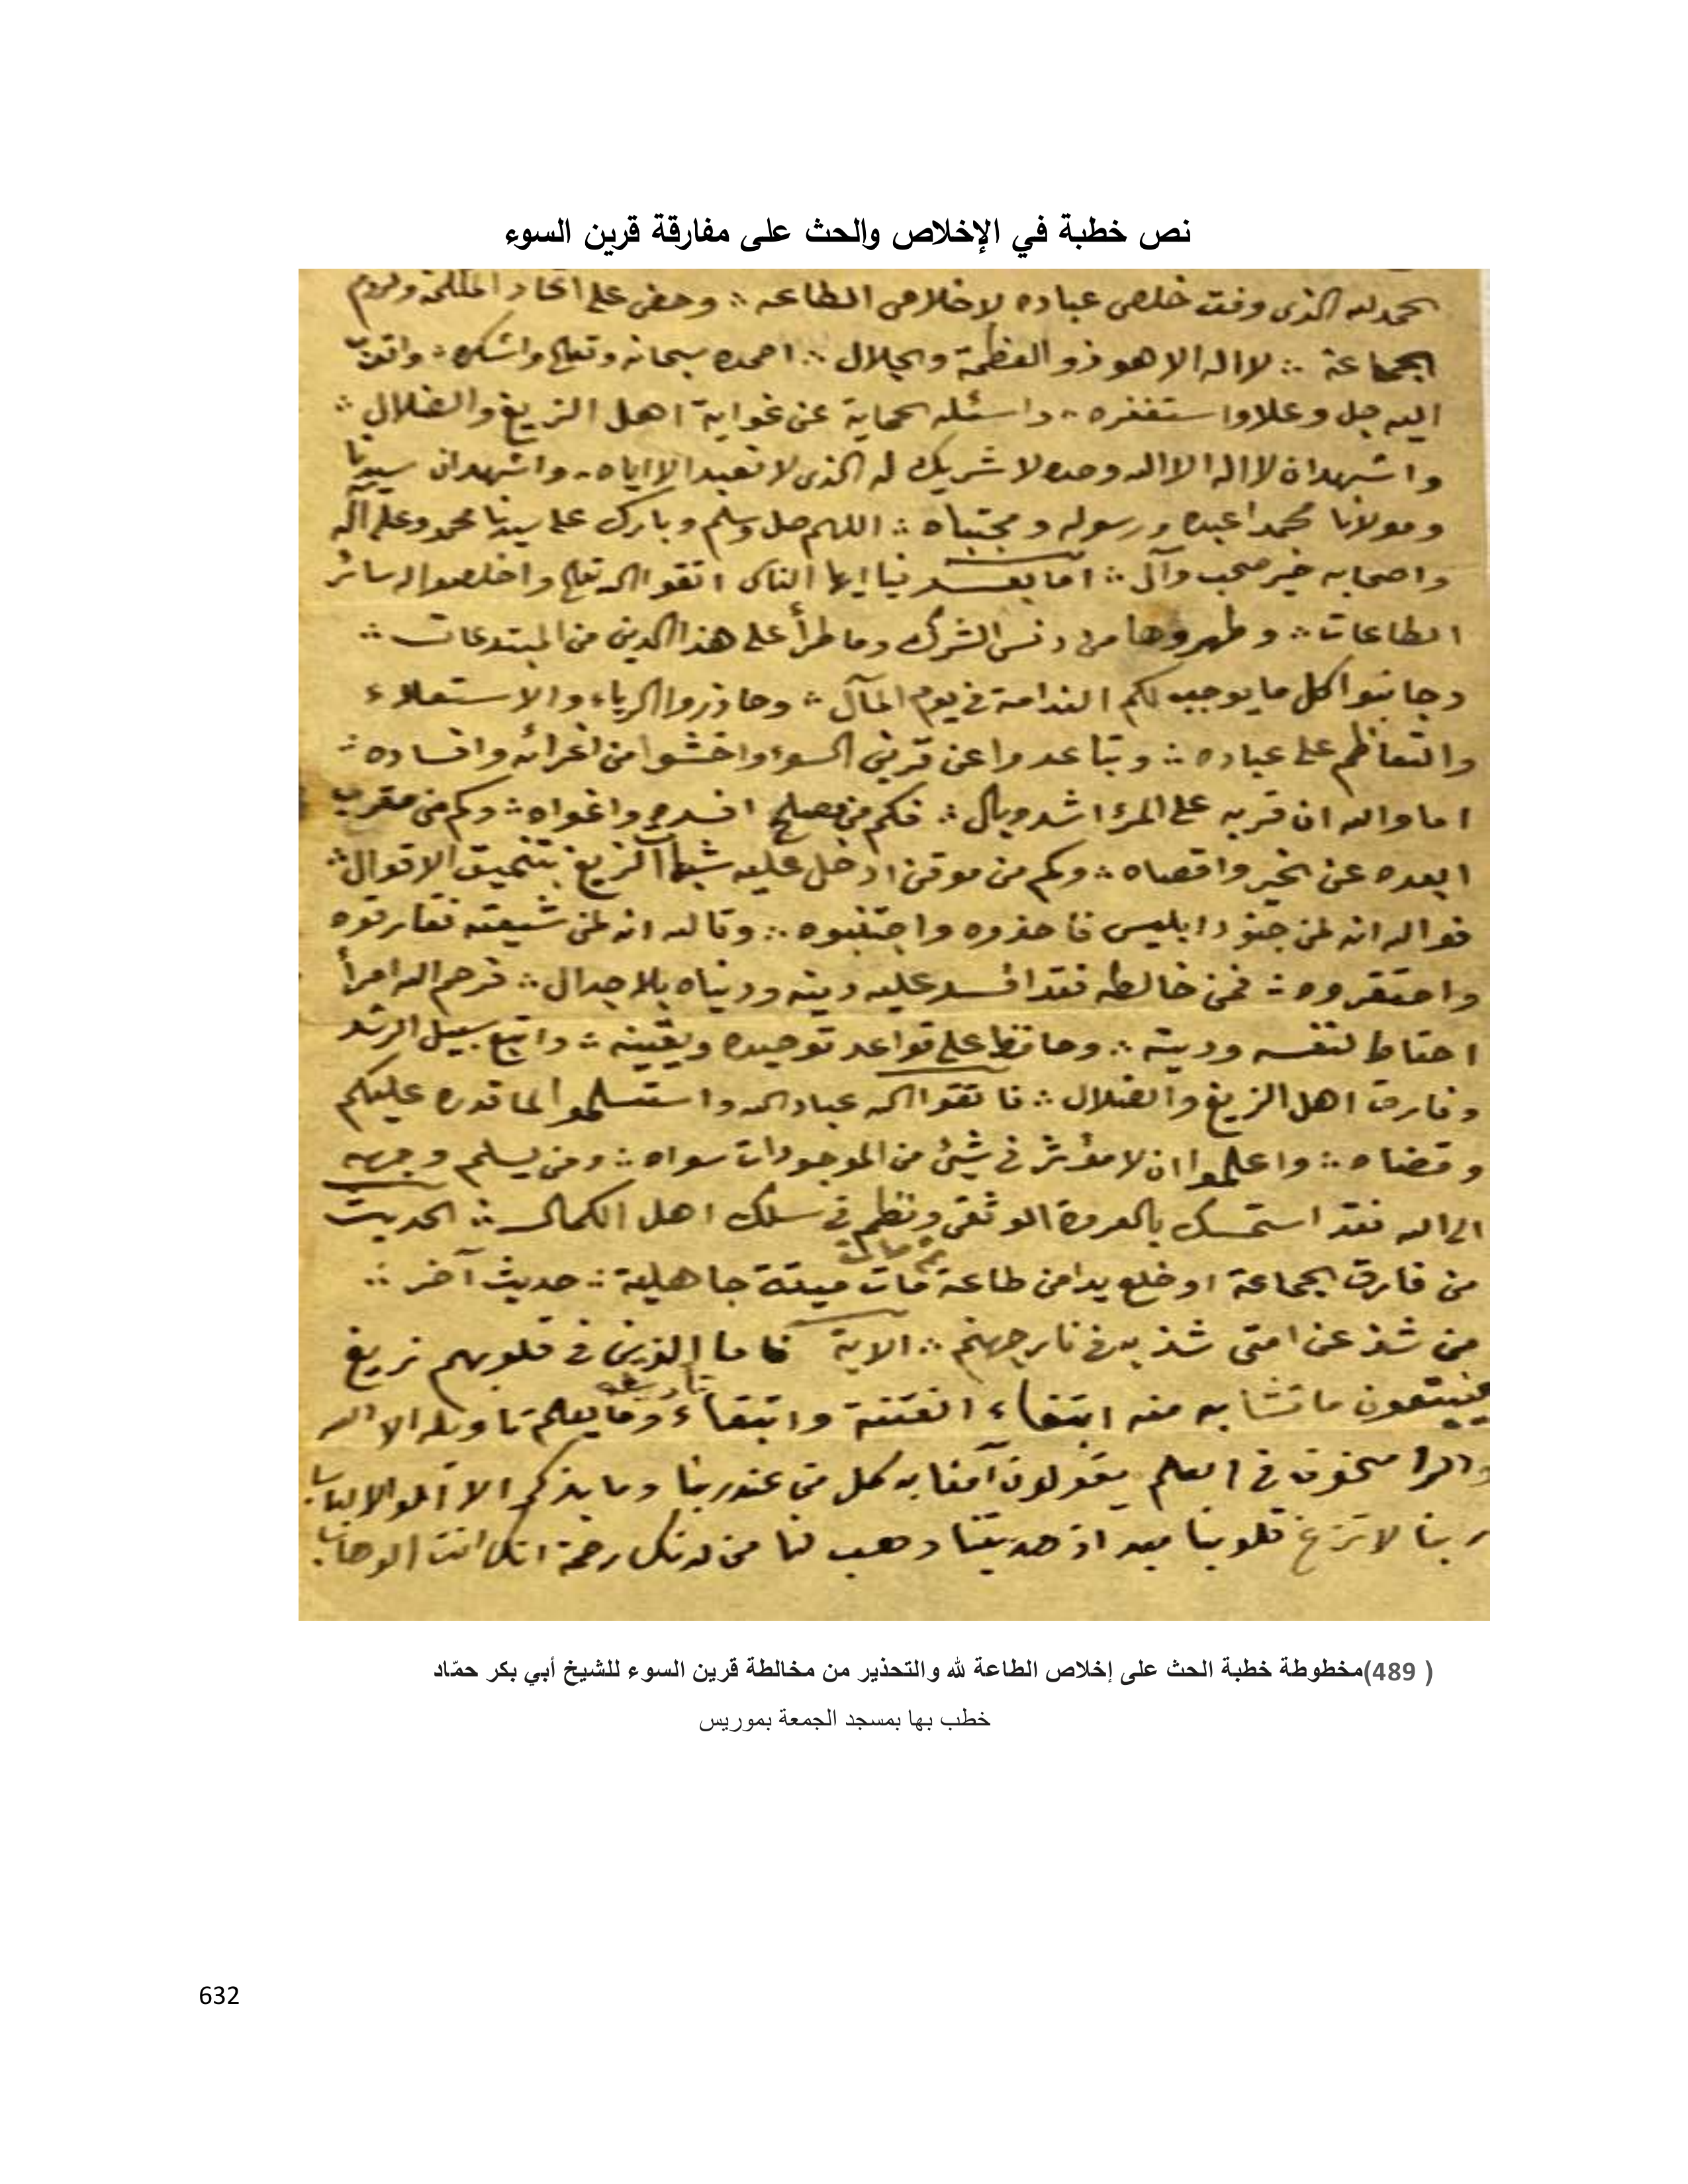 نص خطبة في الإخلاص والحث على مفارقة قرين السوء
الحمد لله الذى وفق خلص عباده لاخلاص الطاعه ∴ وحض على اتحاد الكلمة ولزوم
الجماعة ∴ لا اله الا هو ذو العظمة والجلال ∴ احمده سبحانه وتعالى واشكره ∴ واتوب
اليه جل وعلا واستغفره ∴ واسئله الحماية عن غواية اهل الزيغ والضلال ∴
واشهد ان لا اله الا الله وحده لا شريك له الذى لا نعبد الا اياه ∴ واشهد ان سيدنا
ومولانا محمدا عبده ورسوله ومجتباه ∴ اللهم صل وسلم وبارك على سيدنا محمد وعلى آله
واصحابه خير صحب وآل ∴ اما بعد فيا ايها الناس اتقوا الله تعالى واخلصوا له سائر
الطاعات ∴ وطهروها من دنس الشرك وما طرأ على هذا الدين من المبتدعات ∴
وجانبوا كل ما يوجب لكم الندامة في يوم المآل ∴ وحاذروا الرياء والاستعلاء
والتعاظم على عباده ∴ وتباعدوا عن قرين السوء واخشوا من اغرائه وافساده ∴
اما والله ان قربه على المرء اشد وبال ∴ فكم من مصلح افسده واغواه ∴ وكم من مقرب
ابعده عن الخير واقصاه ∴ وكم من موقن ادخل عليه شبهات الزيغ بتنميق الاقوال ∴
فوالله انه لمن جنود ابليس فاحذروه واجتنبوه ∴ وتالله انه لمن شيعته ففارقوه
واحتقروه ∴ فمن خالطه فقد افسد عليه دينه ودنياه بلا جدال ∴ فرحم الله امرأ
احتاط لنفسه ودينه ∴ وحافظ على قواعد توحيده ويقينه ∴ واتبع سبيل الرشد
وفارق اهل الزيغ والضلال ∴ فاتقوا الله عباد الله واستسلموا لما قدره عليكم
وقضاه ∴ واعلموا ان لا مؤثر في شئ من الموجودات سواه ∴ ومن يسلم وجهه
الى الله فقد استمسك بالعروة الوثقى ونظم في سلك اهل الكمال ∴ الحديث
من فارق الجماعة او خلع يدا من طاعة ثم مات مات ميتة جاهلية ∴ حديث آخر ∴
من شذ عن امتى شذ به في نار جهنم ∴ الاية فاما الذين في قلوبهم زيغ
فيتبعون ما تشابه منه ابتغاء الفتنة وابتغاء تأويله وما يعلم تاويله الا الله
والراسخون في العلم يقولون آمنا به كل من عند ربنا وما يذكر الا اولوا الالباب
ربنا لا تزغ قلوبنا بعد اذ هديتنا وهب لنا من لدنك رحمة انك انت الوهاب
( 489)مخطوطة خطبة الحث على إخلاص الطاعة لله والتحذير من مخالطة قرين السوء للشيخ أبي بكر حمّاد
خطب بها بمسجد الجمعة بموريس
632